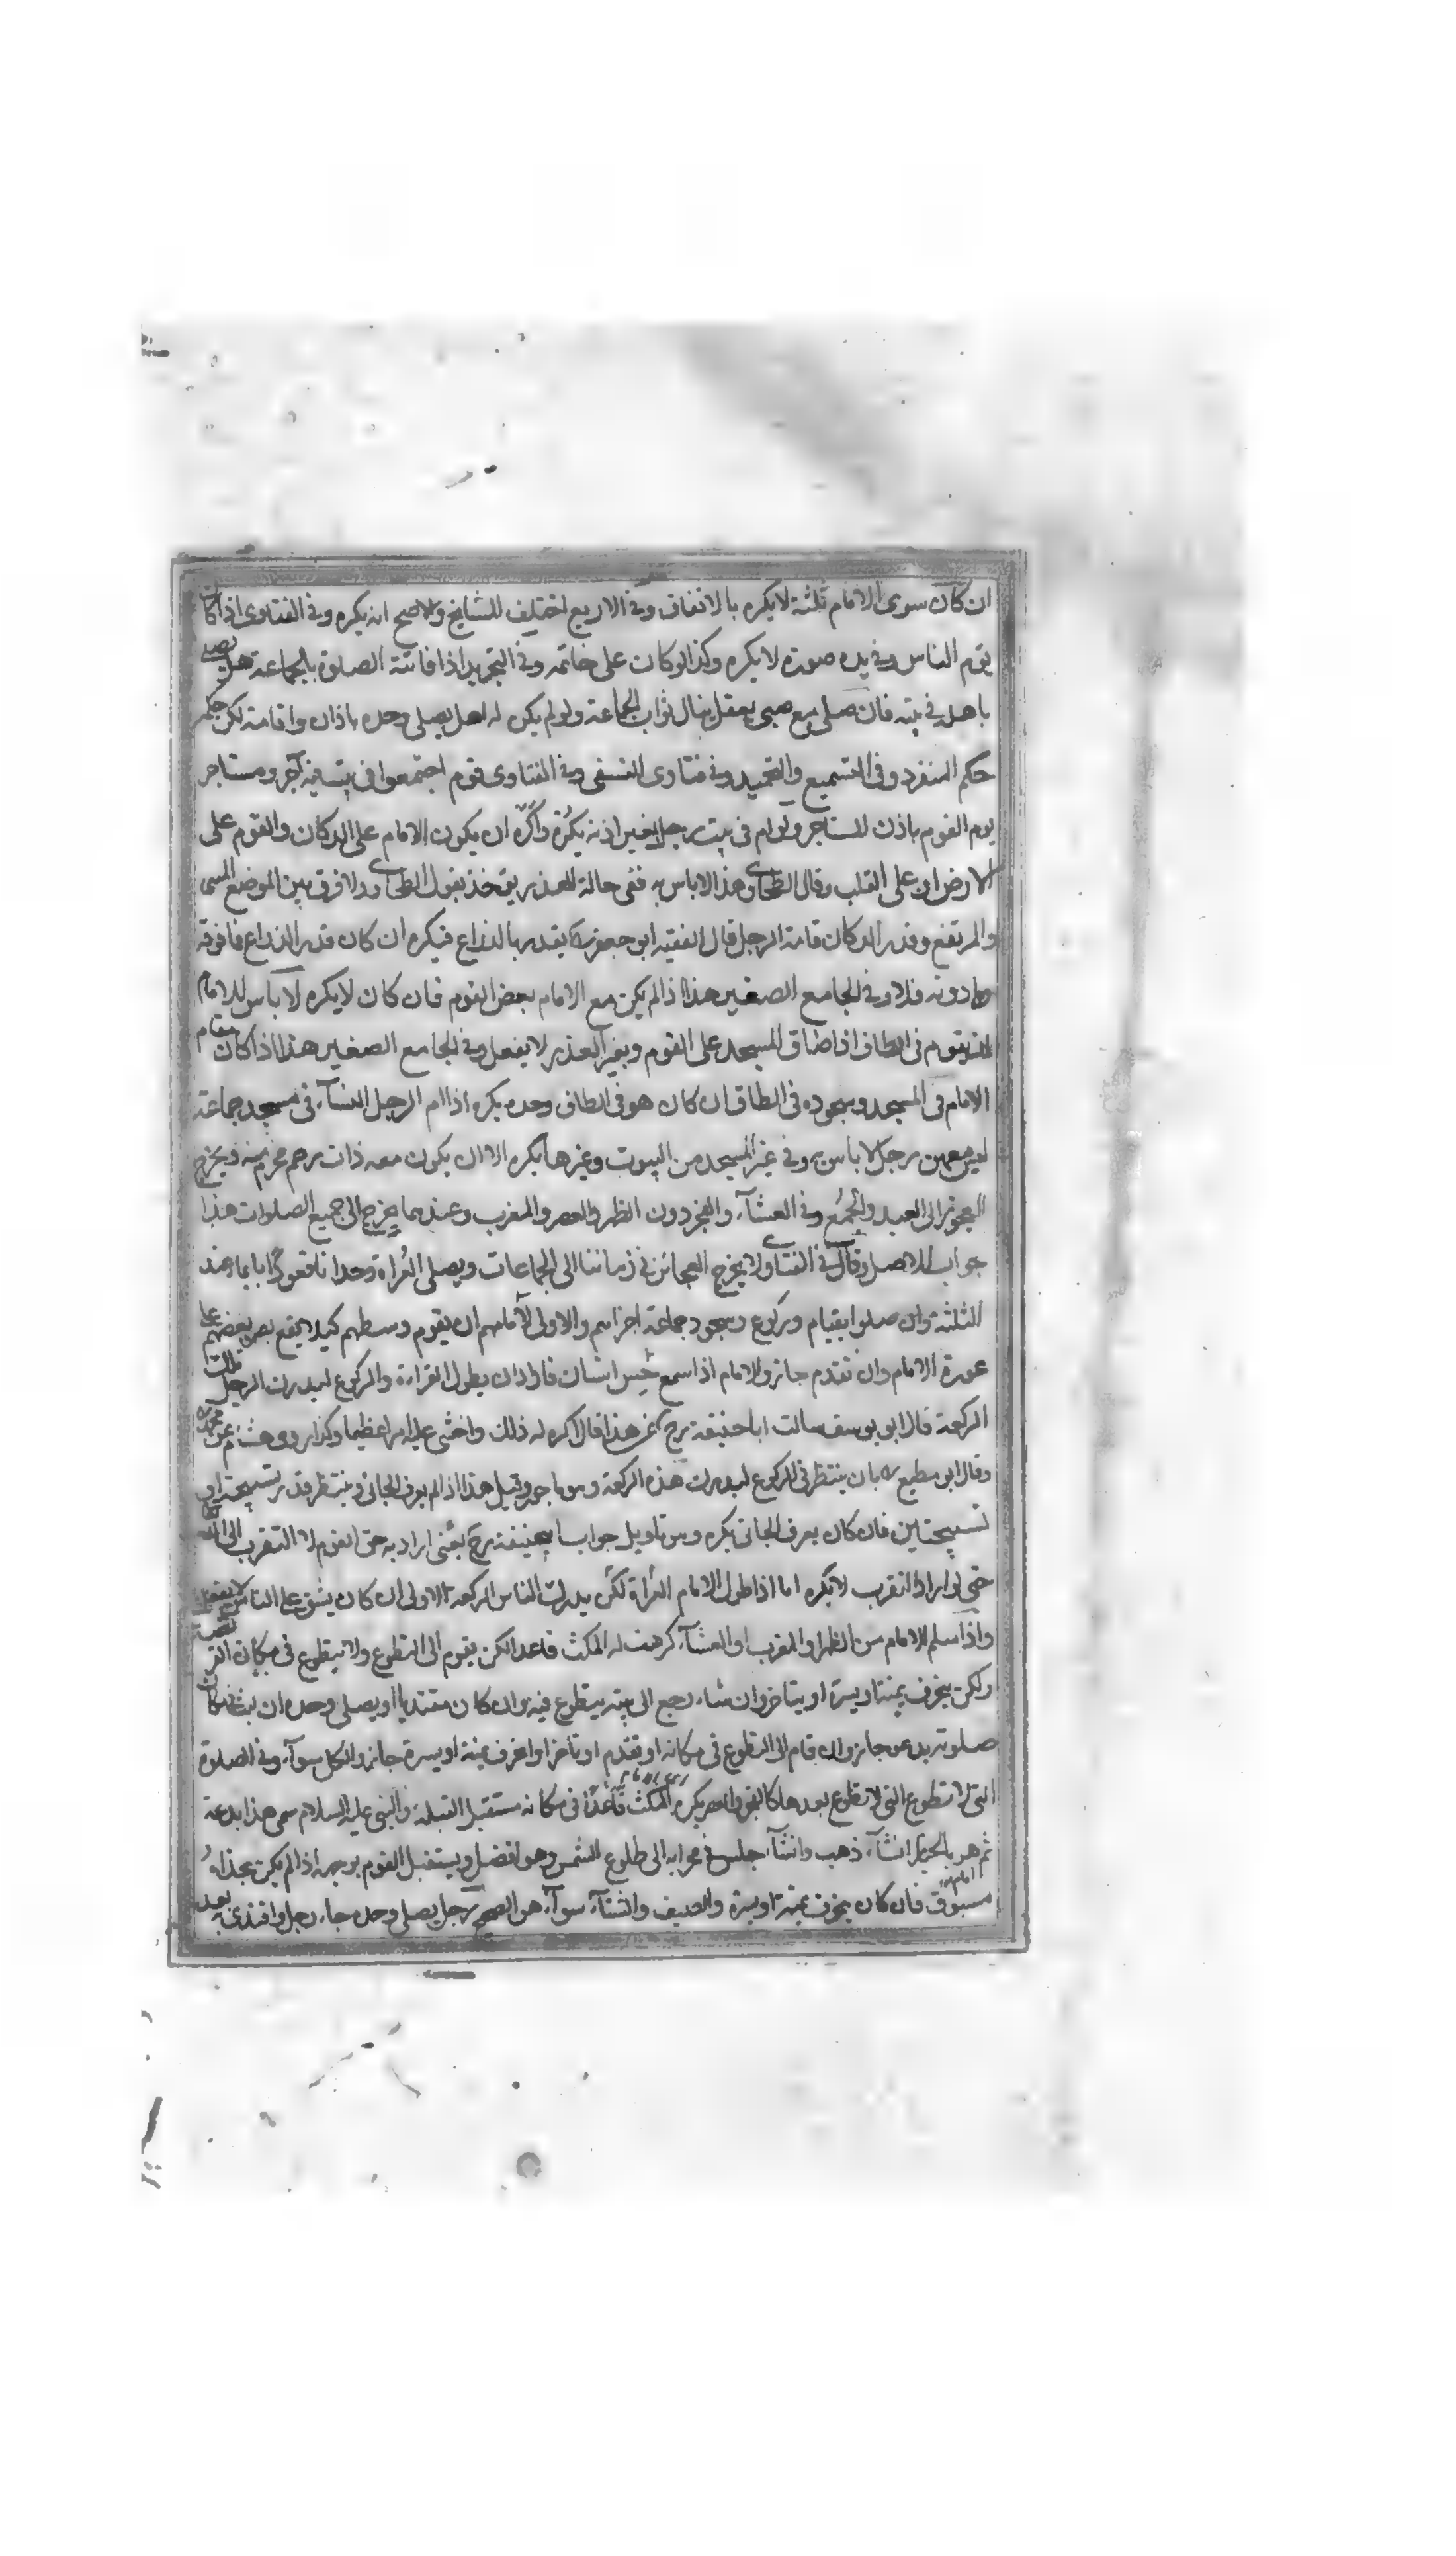 ان كان سوى الامام ثلثة لا يكره بالاتفاق وفى الاربع اختلف المشايخ والاصح انه يكره وفى الفتاوى اذا كان
يؤم الناس وفى يده صورة لا يكره وكذا لو كان على خاتمه وفى التجريد اذا فاتته الصلوة بالجماعة هل يصلى
باهله فى بيته فان صلى مع صبى يعقل ينال ثواب الجماعة ولو لم يكن له اهل يصلى وحده باذان واقامة لكن حكمه
حكم المنفرد وفى التسميع والتحميد وفى فتاوى النسفى وفى الفتاوى قوم اجتمعوا فى بيت فيه آجر ومستاجر
يوم القوم باذن المستاجر ولو ام فى بيت رجل بغير اذنه يكره واكره ان يكون الامام على الدكان والقوم على
الارض او على القلب وقال الطحاوى هذا لا باس به ففى حالة العذر يؤخذ بقول الطحاوى ولا فرق بين الموضع
والمرتفع وقدر الدكان قامة الرجل قال الفقيه ابو جعفر يقدر بالذراع فيكره ان كان قدر الذراع فما فوقه
وما دونه فلا وفى الجامع الصغير هذا اذا لم يكن مع الامام بعض القوم فان كان لا يكره لا باس للامام
ان يقوم فى الطاق اذا ضاق المسجد على القوم وبغير العذر لا يفعل وفى الجامع الصغير هذا اذا كان مقام
الامام فى المسجد وسجوده فى الطاق ان كان هو فى الطاق وحده يكره اذا ام الرجل النساء فى مسجد جماعة
ليس معهن رجل لا باس به وفى غير المسجد من البيوت وغيرها يكره الا ان يكون معه ذات رحم محرم منه ويخرج
العجوز الى العيد والجمع وفى العشاء والفجر دون الظهر والعصر والمغرب وعندهما يخرج الى جميع الصلوات هذا
جواب الاصل وقال فى الفتاوى لا يخرج العجائز فى زماننا الى الجماعات ويصلى العراة وحدانا قعودا بايماء عند
الثلثة وان صلوا بقيام وركوع وسجود جماعة اجزاهم والاولى لامامهم ان يقوم وسطهم كيلا يقع بصر بعضهم على
عورة الامام وان تقدم جاز والامام اذا سمع حس انسان فاراد ان يطول القراءة والركوع ليدرك الرجل تلك
الركعة قال ابو يوسف سالت ابا حنيفة رح عن هذا فقال اكره له ذلك واخشى عليه امرا عظيما وكذا روى هشام عن محمد
وقال ابو مطيع بان ينتظر فى الركوع ليدرك هذه الركعة وهو ماجور وقيل هذا اذا لم يعرف الجائى وينتظر قدر تسبيحة او
تسبيحتين فان كان يعرف الجائى يكره وهو تاويل جواب ابيحنيفة رح يعنى اراد به حق القوم لا التقرب الى الله
حتى لو اراد التقرب لا يكره اما اذا طول الامام القراة لكى يدرك الناس الركعة الاولى ان كان يشق على الناس لا يفعل
واذا سلم الامام من الظهر او المغرب او العشاء كرهت له المكث قاعدا لكن يقوم الى التطوع ولا يتطوع فى مكان
ولكن ينحرف يمنة او يسرة او يتاخر وان شاء رجع الى بيته يتطوع فيه وان كان مقتديا او يصلى وحده ان لبث
صلوته يدعو جاز وان قام الى التطوع فى مكانه او تقدم او تاخر او انحرف يمنة او يسرة جاز والكل سواء وفى الصلوة
التى لا تطوع التى لا تطوع بعدها كالفجر والعصر يكره المكث قاعدا فى مكانه مستقبل القبلة والنبى عليه السلام سمى هذا بدعة
ثم هو بالخيار ان شاء ذهب وان شاء جلس فى محرابه الى طلوع الشمس وهو افضل ويستقبل القوم بوجهه اذا لم يكن بحذائه
مسبوق فان كان ينحرف يمنة او يسرة والصيف والشتاء سواء هو الصحيح رجل يصلى وحده جاء رجل واقتدى به بعد